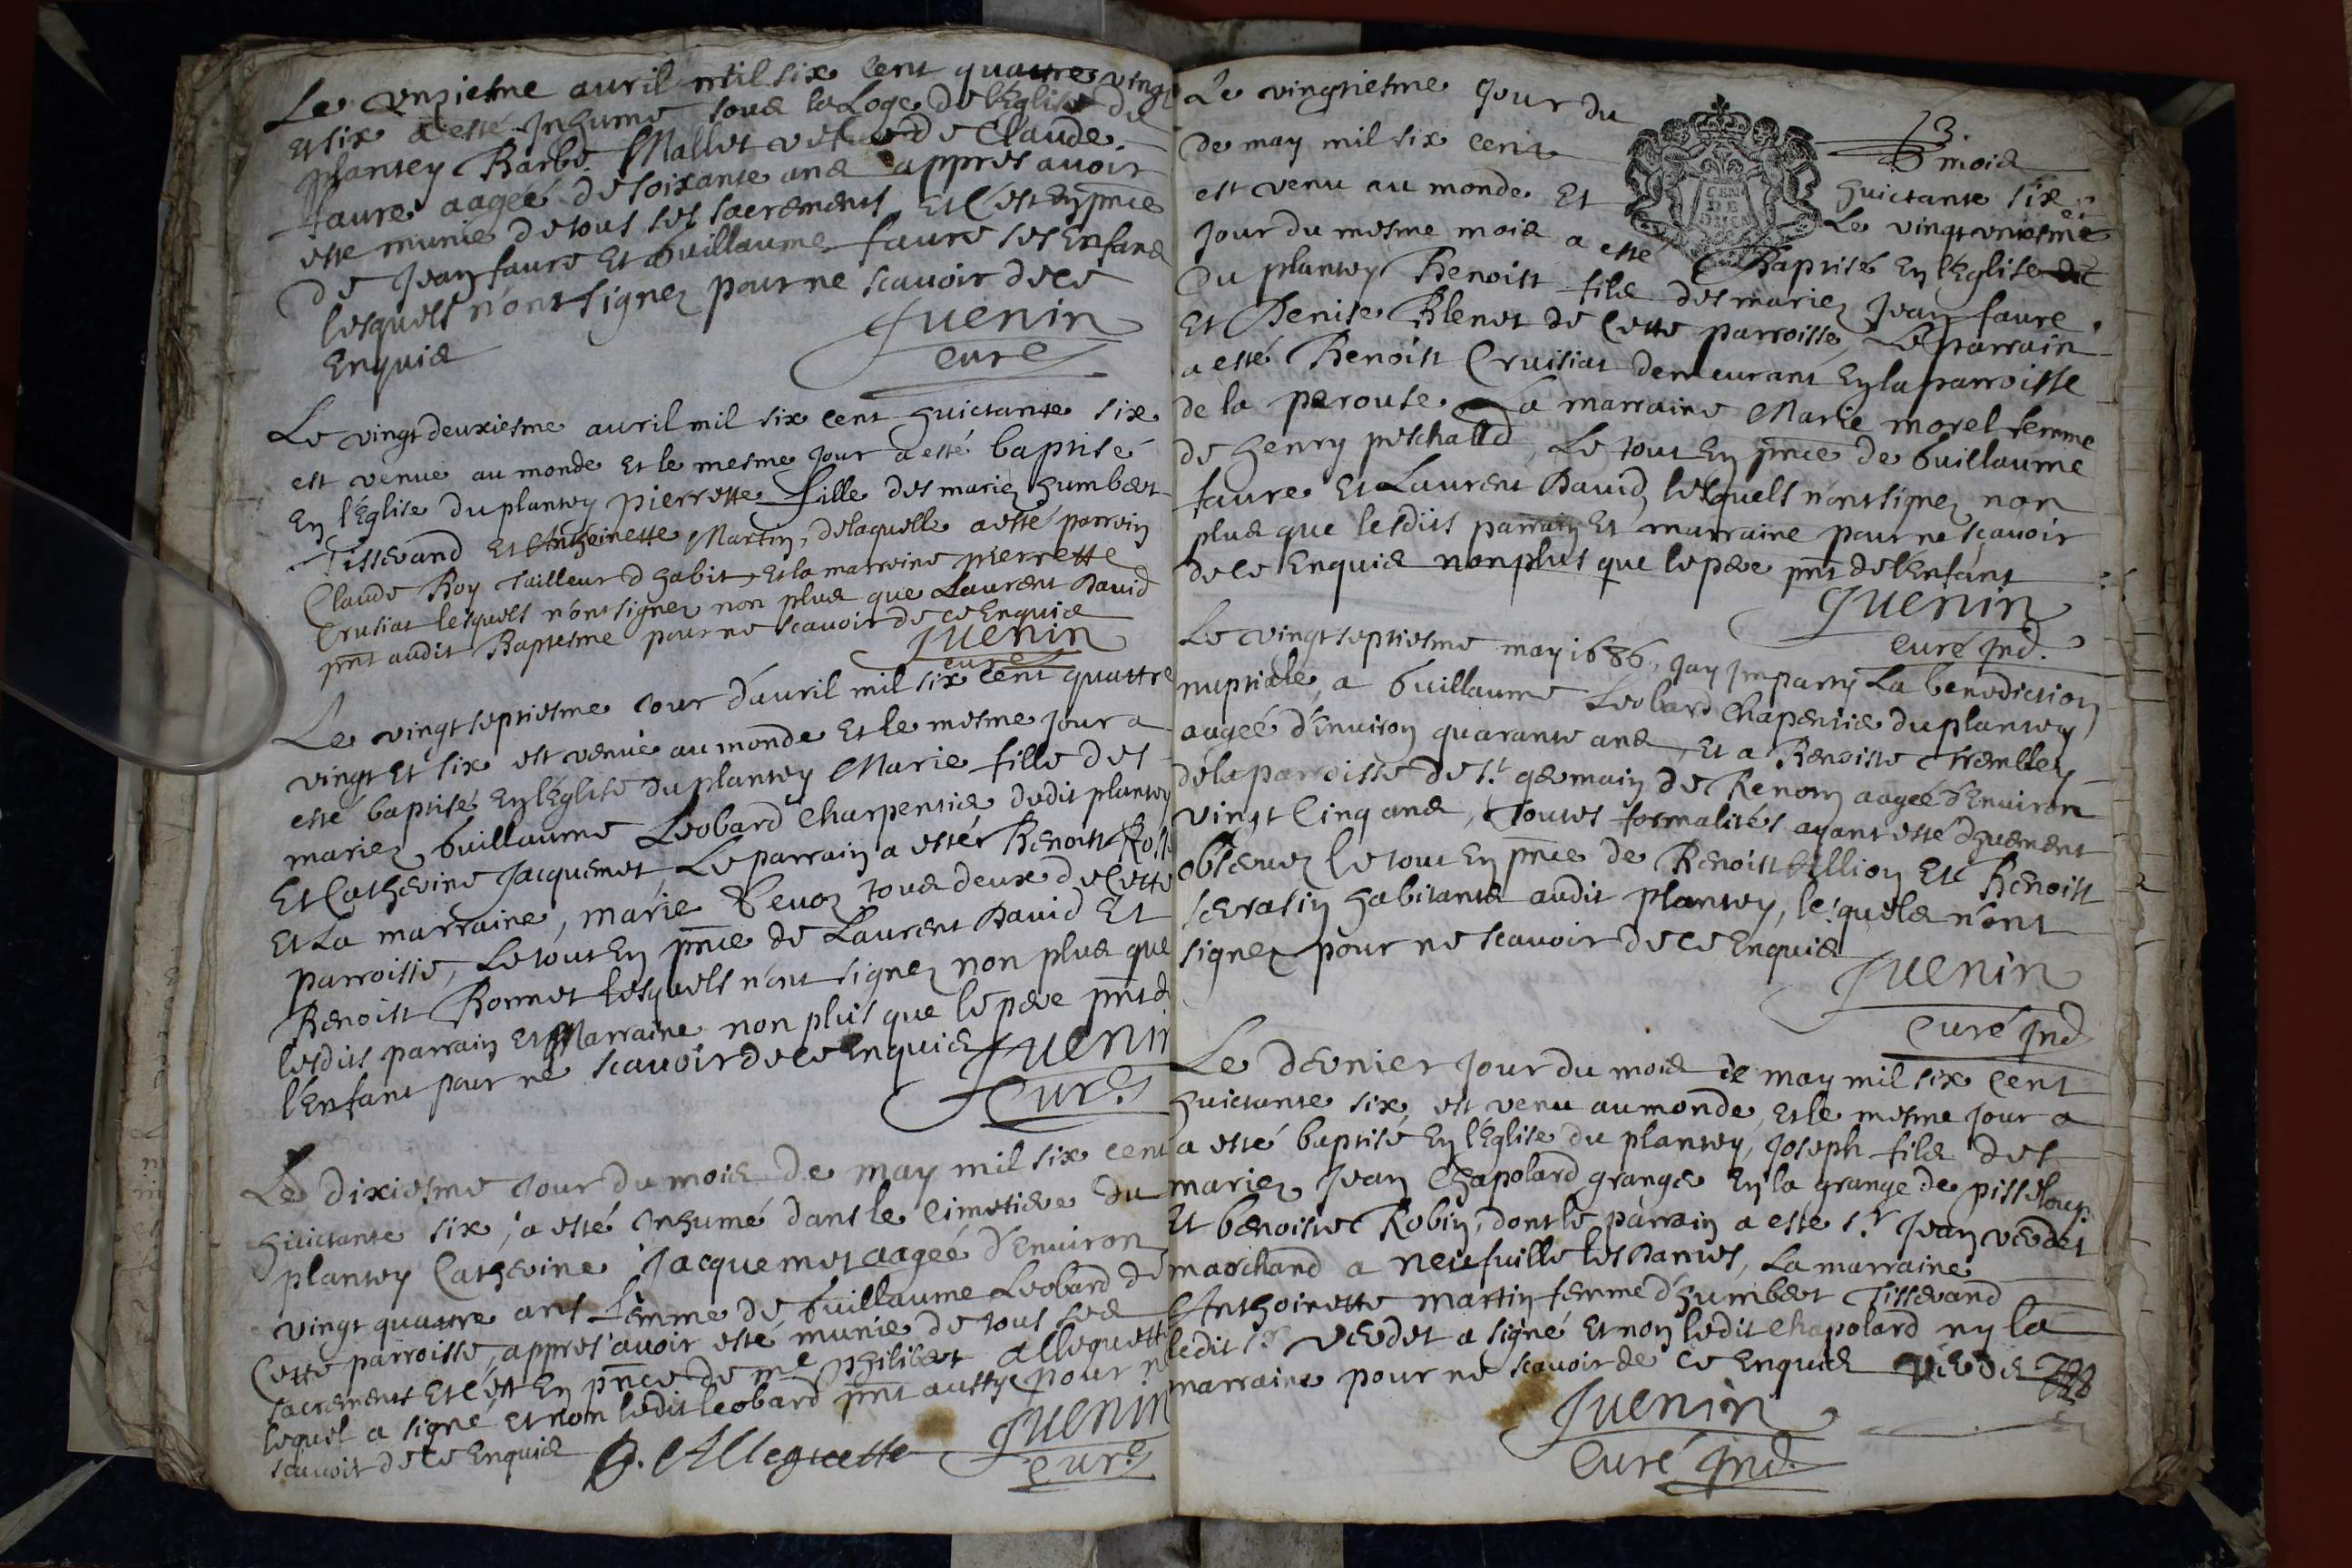 Le unziesme auril mil six cent quattre vingt
et six a esté Inhumé soub la Loge de l'Eglise du
plantey Barbe Mallet vefue de Claude
faure aagéé de soixante ans appres auoir
esté munie de tous ses sacrements et c'est en pnce
de Jean faure et Guillaume faure ses Enfans
lesquels n'ont signez pour ne scauoir de ce
Enquis
Juenin
curé
Le vingt deuxiesme auril mil six cent huictante six
est venue au monde et le mesme jour a esté baptisé
En l'Eglise du plantey pierrette fille des mariez humbert
Tisserand et Anthoinette Martin, de laquelle a esté parrein
Claude Roy Tailleur d'habit et la marreine pierrette
Crusiat lesquels n'ont signez non plus que Laurent Dauid
pnt audit Baptesme pour ne scauoir de ce Enquis
Juenin
curé
Le vingt septiesme jour d'auril mil six cent quattre
vingt et six est venue au monde et le mesme jour a
esté baptisé en l'Eglise du plantey Marie fille des
mariez Guillaume Leobard Charpentier dudit plantey
Et Catherine Jacquemet, Le parrain a esté Benoist
Et La marraine, marie tous deux de Cette
parroisse, Le tout en pnce de Laurent Dauid Et
Benoist Bonnet lesquels n'ont signez non plus que
lesdits parrain et Marraine non plus que le pere pnt d
l'Enfant pour ne scauoir de ce Enquis
Juenin
Curé
Le dixiesme jour du mois de may mil six cent
huictante six, a esté Inhumé dans le Cimetiere Du
plantey Catherine Jacquemet aagéé d'Enuiron
vingt quattre ans femme de Guillaume Leobard de
Cette parroisse, appres auoir esté munie de tous ses
sacrements et c'est En pnce de me philibert Alleguette
lequel a signé et non ledit leobard pnt aussy pour ne
scauoir de ce Enquis P. Alleguette
Juenin
Curé
Le vingtiesme jour du
13.
mois
de may mil six cent
huictante six
est venu au monde Et
Le vingt vniesme
jour du mesme mois a esté Baptisé En l'Eglise
du plantey Benoist fils des mariez Jean faure
Et Denise Blenet de Cette parroisse, Le parrain
a esté Benoist Cruisiat demeurant en la parroisse
de la perouse La marraine Marie morel femme
de henry peschalld, Le tout En pnce de Guillaume
faure Et Laurent Dauid, lesquels n'ont signez non
plus que lesdits parrain Et marraine pour ne sçauoir
de ce Enquis non plus que le pere pnt de l'Enfant
Juenin
curé Ind.
Le vingt septiesme may 1686, Jay Imparty La benediction
nuptiale, a Guillaume Leobard Chapentier du plantey
aagéé d'Enuiron quarante ans, Et a Benoiste Trembley
de la parroisse de St germain de Renom aagéé d'Enuiron
vingt Cinq ans, Toutes formalités ayant esté dhuement
obseruez le tout En pnce de Benoist billion Et Benoist
serasin habitants audit plantey, lesquels n'ont
signez pour ne scauoir de ce Enquis
Juenin
Curé Ind
Le dernier jour du mois de may mil six cent
huictante six, est venu au monde, et le mesme jour a
a esté baptisé En l'Eglise du plantey, Joseph fils des
mariez Jean Chapolard granger En la grange de pisseloup
Et benoiste Robin, dont le parrain a esté sr Jean verdet
marchand a neufuille les Dames, La marraine
Anthoinette martin femme d'humbert Tisserand
ledit sr verdet a signé et non ledit chapolard ny la
marraine pour ne scauoir de ce Enquis
Juenin
Curé Ind.